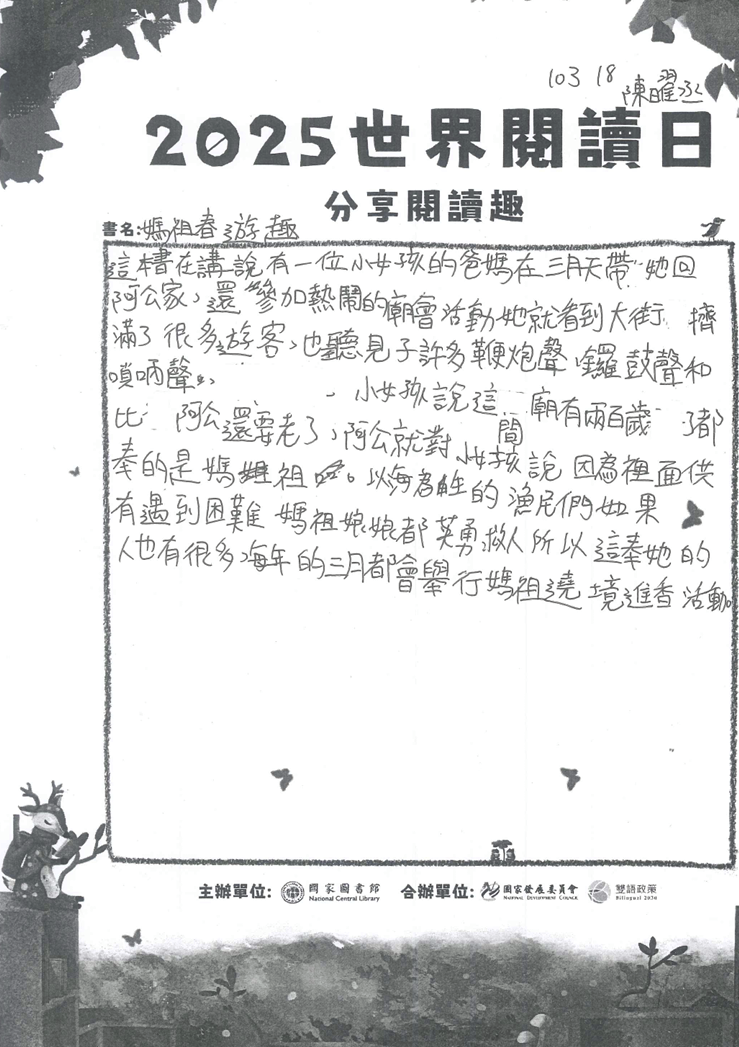 103 18 陳曜丞
2025世界閱讀日
分享閱讀趣
書名:媽祖春遊趣
這本書在講說有一位小女孩的爸媽在三月天帶她回
阿公家，還參加熱鬧的廟會活動她就看到大街擠
滿了很多遊客，也聽見了許多鞭炮聲鑼鼓聲和
嗩吶聲。
小女孩說這間廟有兩百歲了都
比阿公還要老了，阿公就對小女孩說因為裡面供
奉的是媽祖。以海為生的漁民們如果
有遇到困難媽祖娘娘都英勇救人所以這奉她的
人也有很多，每年的三月都會舉行媽祖遶境進香活動。
主辦單位: 國家圖書館 National Central Library 合辦單位: 國家發展委員會 National Development Council 雙語政策 Bilingual 2030